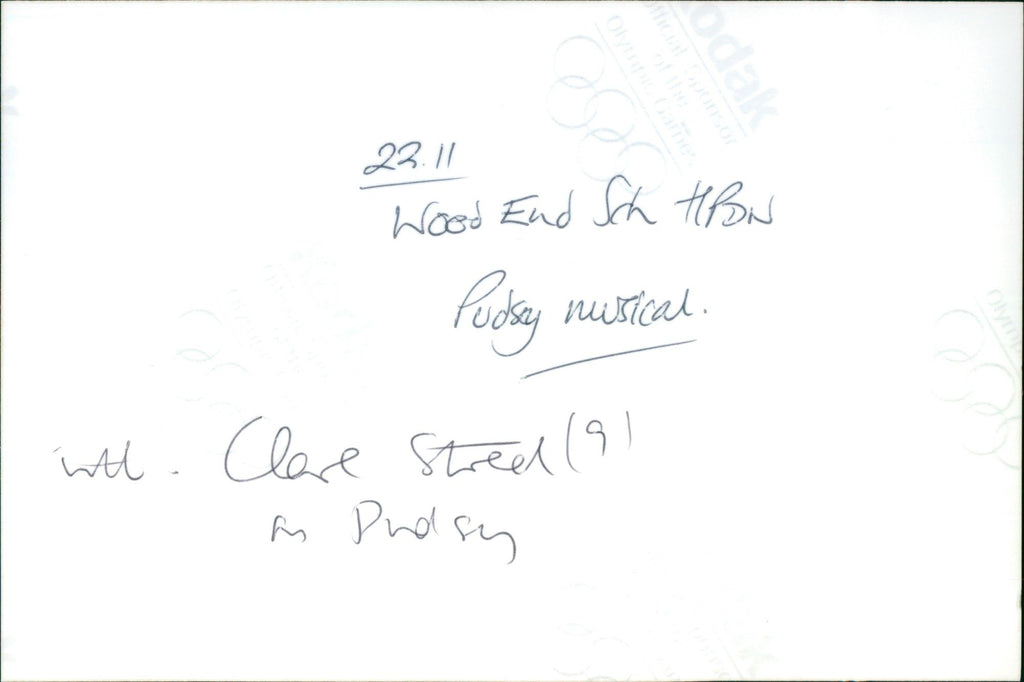 Kodak
Official Sponsor
of the
Olympic Games
22.11
Wood End Sch HPDN
Pudsy musical.
with. Clare Streed (9)
as Pudsy